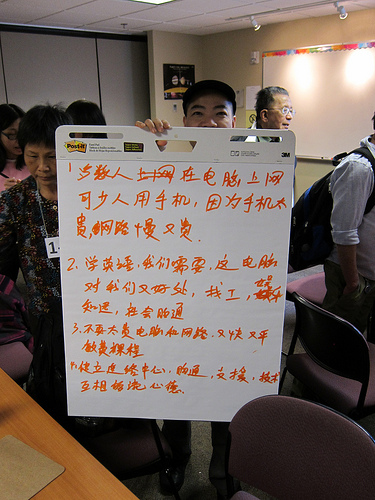 Post-it
3M
1. 少数人上网在电脑上网
可少人用手机，因为手机太
贵，網路慢又贵.
2. 学英语，我们需要，这电脑
对我们又好处，找工，娱乐
知道，社会沟通
3. 不要太贵电脑和网路，又快又平
做费课程
4. 建立连络中心，沟通，支援，技术
互相交流心德.
1